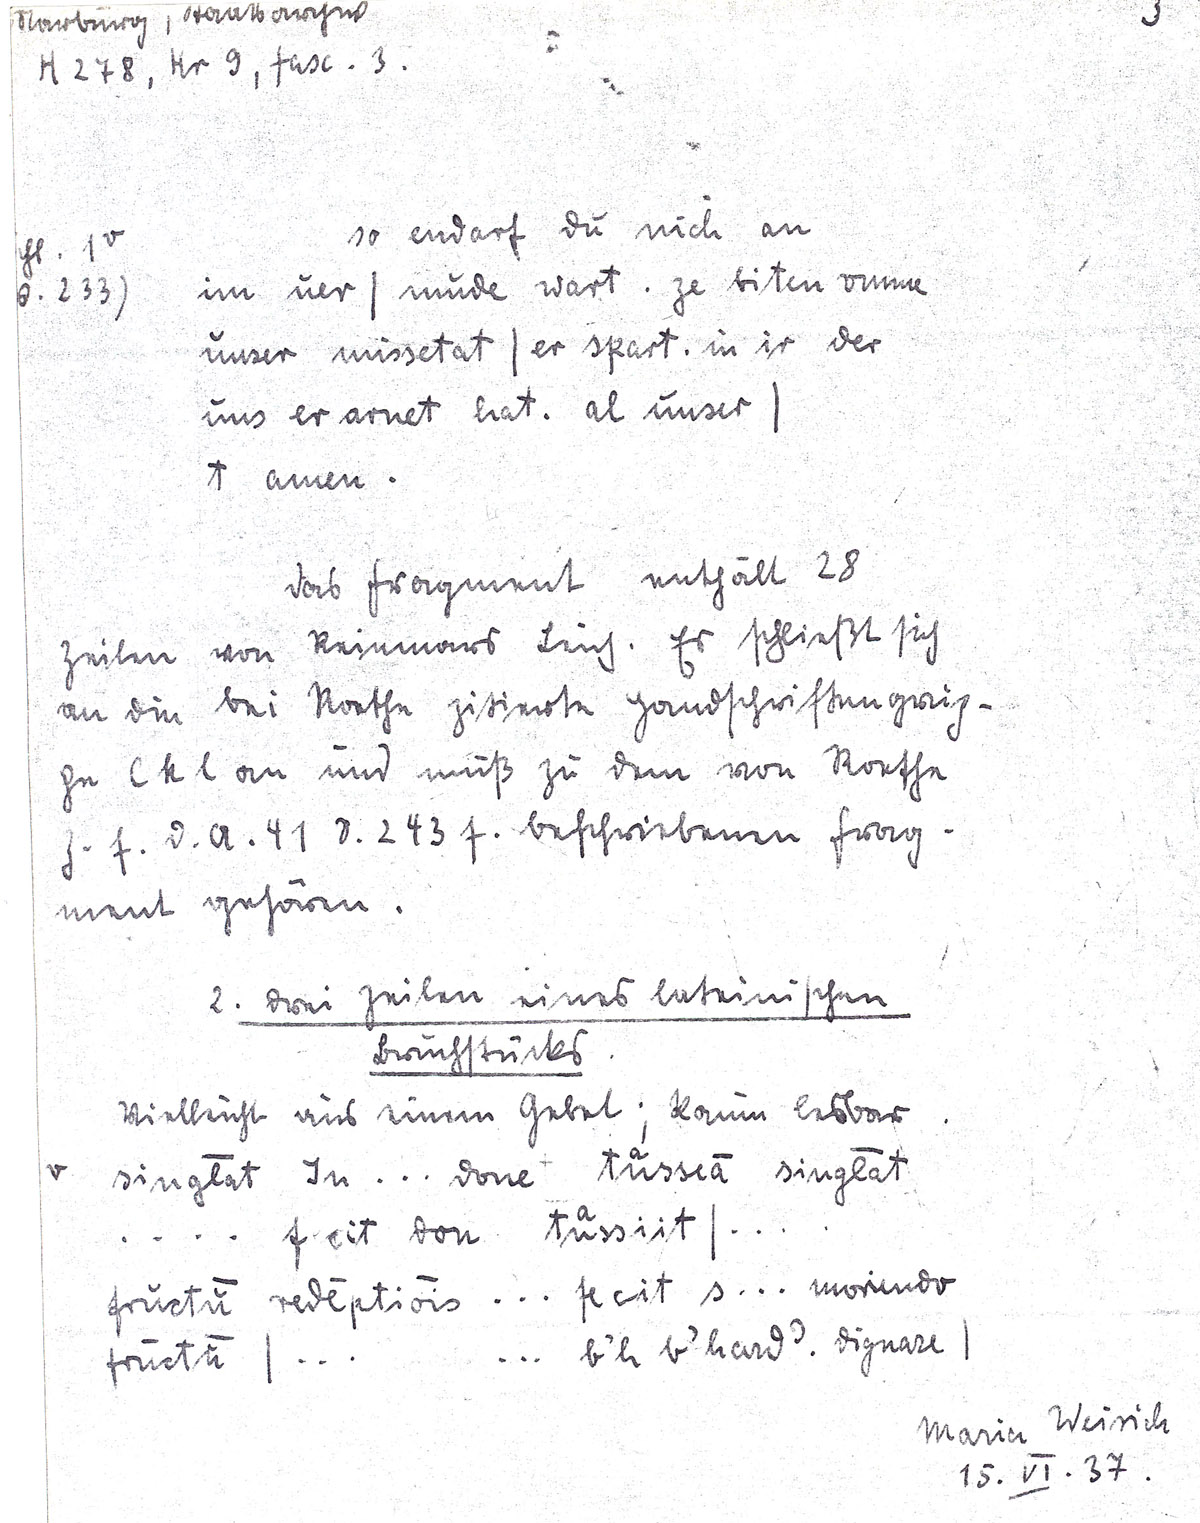 Marburg, Staatsarchiv 3
H 278, Nr 9, fasc. 3.
so endarf du nich an
Bl. 1v
S. 233) im uer | mude wart. ze biten vmme
unser missetat | er spart. in ir der
uns er arnet hat. al unser |
t amen.
das Fragment enthält 28
Zeilen von Reinmars Leich. Es schließt sich
an die bei Roethe zitierte Handschriftengrup-
pe C k l an und muß zu dem von Roethe
Z. f. d. A. 41 S. 243 f. beschriebenen Frag-
ment gehören.
2. drei Zeilen eines lateinischen
Bruchstücks.
Vielleicht aus einem Gebet; kaum lesbar.
v singlāt In ... done tuͣsseā singlāt
.... f cit don tuͣssiit | ....
fructū redēptiōis ... fecit s... moriendo
fructū | ... ... b'h b'hard'. dignare |
Maria Weirich
15. VI. 37.